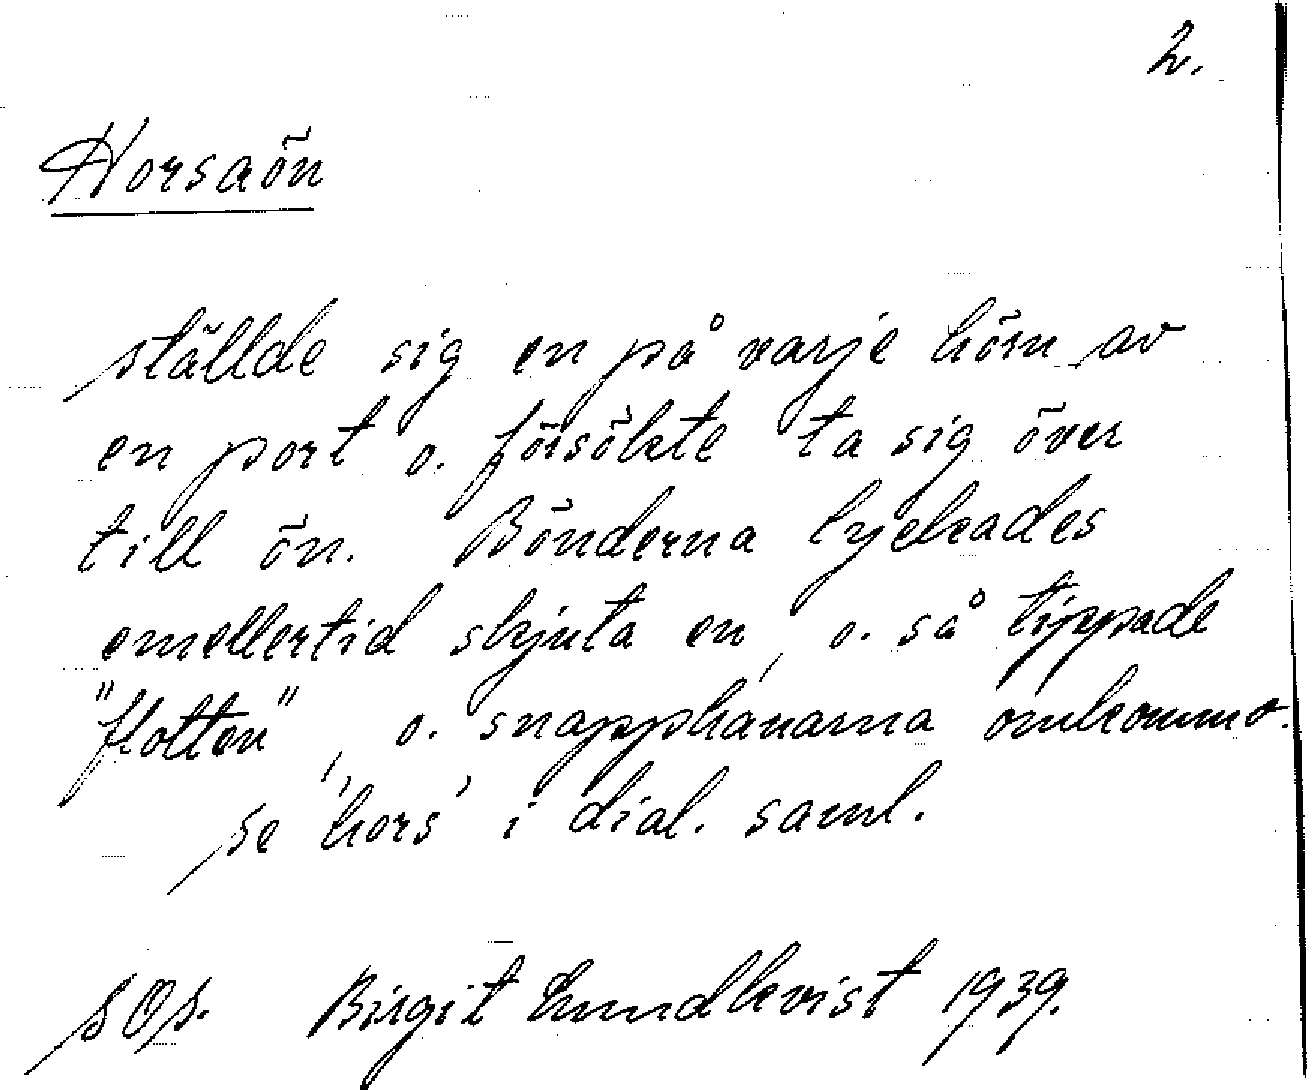 2.
Horsaön
ställde sig en på varje hörn av
en port o. försökte ta sig över
till ön. Bönderna lyckades
emellertid skjuta en, o. så tippade
"flotten", o. snapphanarna omkommo.
se 'hors' i dial. saml.
sOs. Birgit Lundkvist 1939.